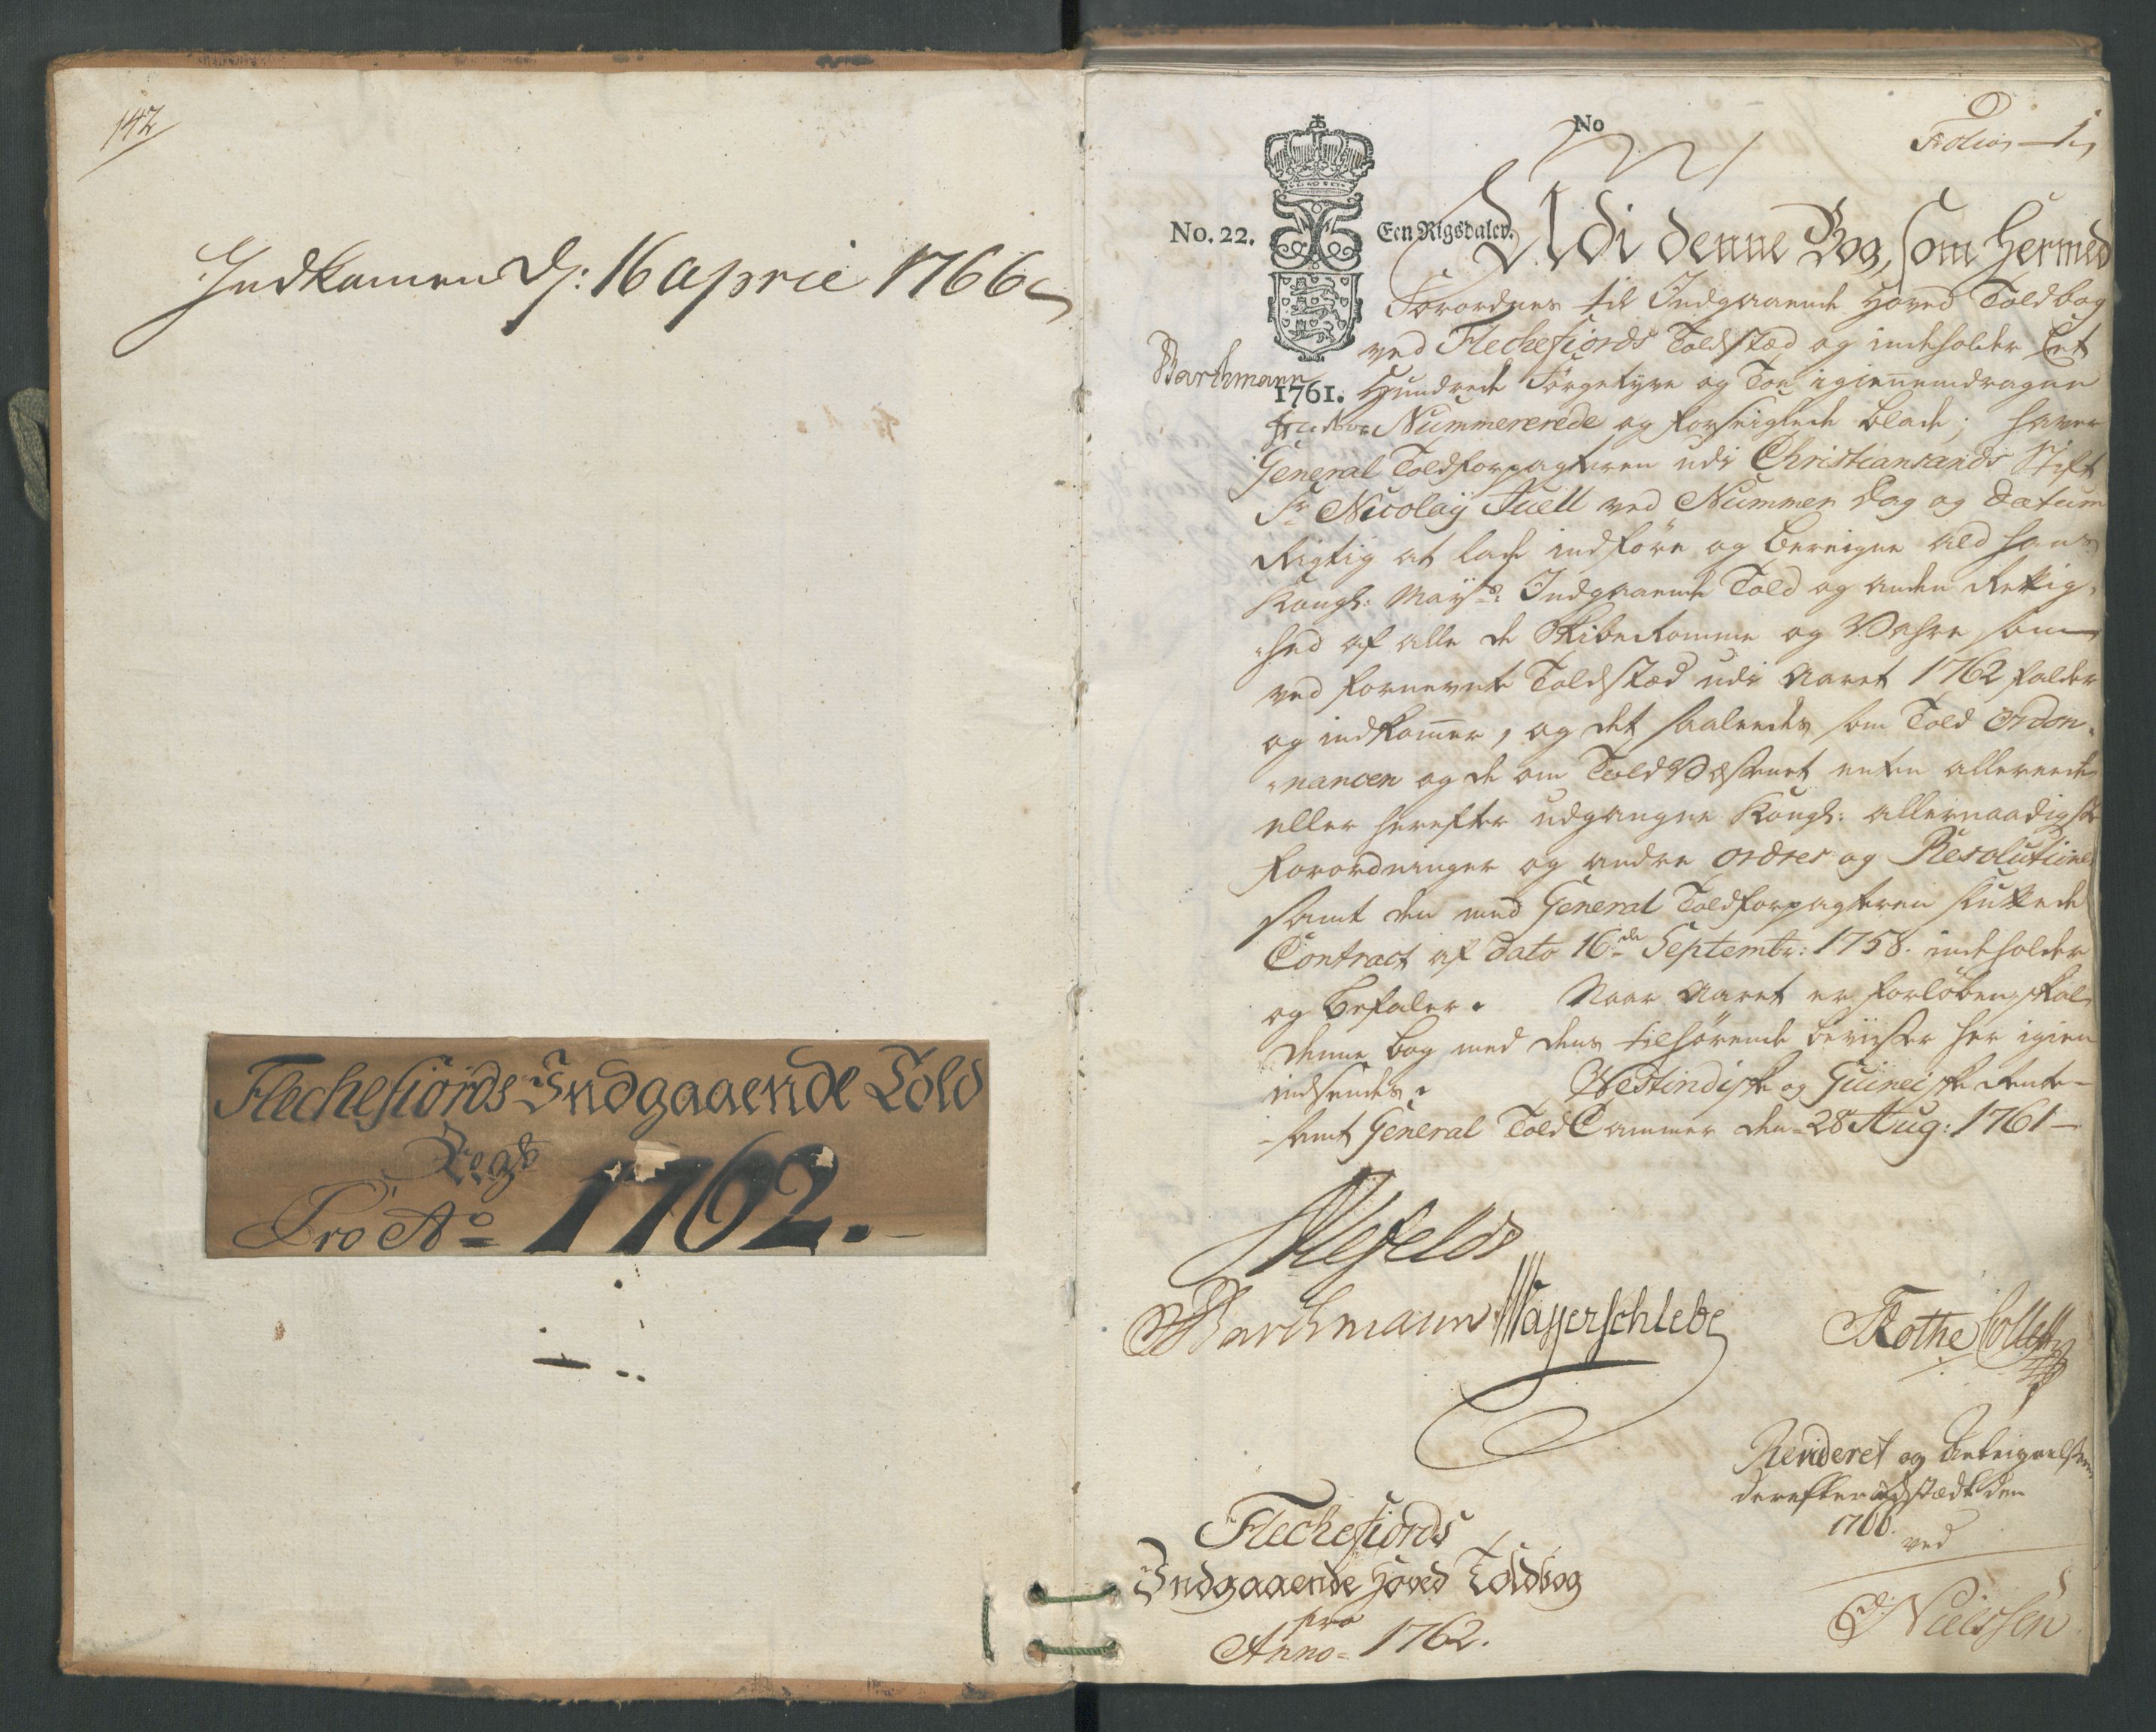 142
Indkommen D: 16 aprie 1766
Flechefiords Indgaaende Told
Regb
Pro Ao 1762.
No
Folio 1
No. 22.
Een Rigsdaler.
Udi denne Bog, som hermed
Forordnes til Indgaaende Hoved Toldbog
ved Flechefiords Toldstæd og indeholder Eet
Barthmann
1761.
Hundrede Förgetyve og Toe igiennemdragne
Nummererede og forseiglede blade; haver
General Toldforpagteren udi Christiansands Stift
Sr Nicolaÿ Juell ved Nummer Dag og Datum
Rigtig at lade indföre og beregne ald hans
Kongl: Mayts: Indgaaende Told og anden Rettig-
hed af alle de Skibe komme og Vahre som
ved fornevnte Toldstæd udi Aaret 1762 falder
og indkommer, og det saaledes som Told Ordon-
nancen og de om Told Væsenet enten allereede
eller herefter udgangne Kongl: allernaadigste
Forordninger og andre Ordres og Resolutioner
samt den med General Toldforpagteren sluttede
Contract af dato 16de Septembr: 1758. indeholder
og befaler. Naar Aaret er forlöben, skal
denne bog med dens tilhörende beviiser her igien
indsendes. Westindiske og Guineiske Rente-
samt General Told Cammer den 28 Aug: 1761
Ahlefeldt
Barthmann Wayerschlebe Rothe Collett
Revideret og Antegnelsen
derefter udstædt den
1766.
ved
Nielssen
Flechefiords
Indgaaende Hoved Toldbog
pro
Anno 1762.